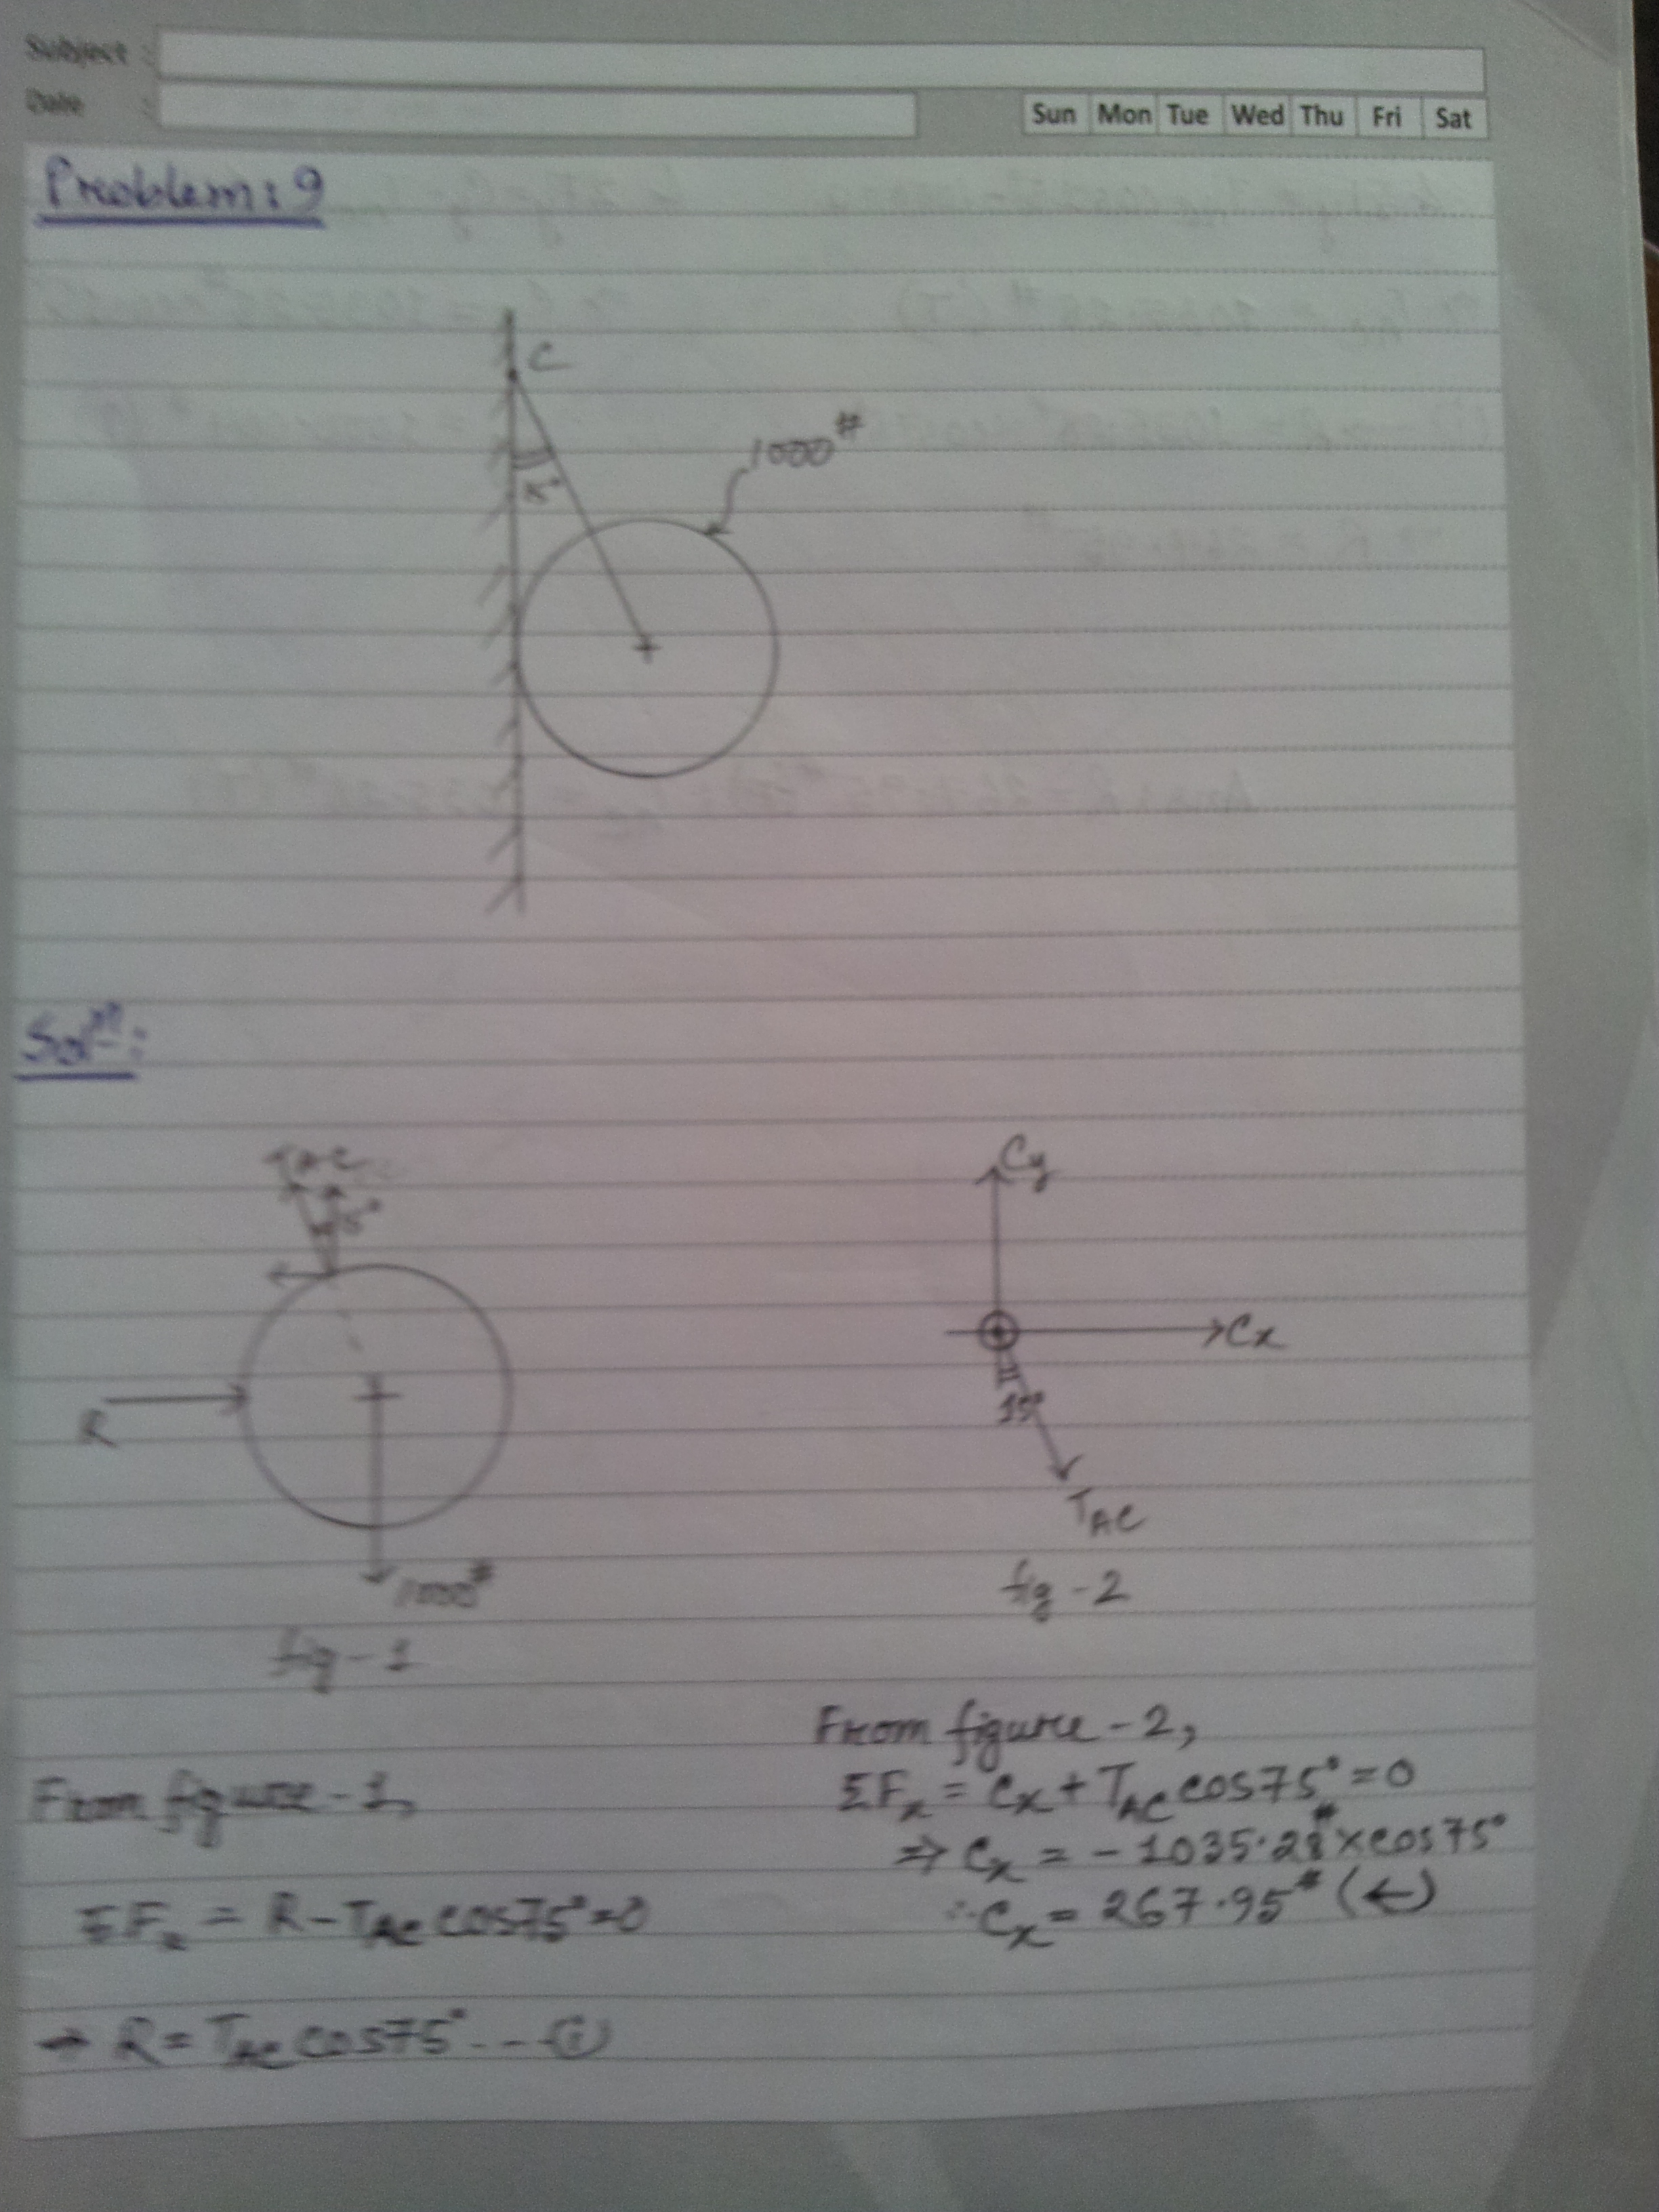 Subject :
Date :
Sun Mon Tue Wed Thu Fri Sat
Problem: 9
C
1000#
Solⁿ:
TAC
15°
R
1000#
fig-1
Cy
Cx
15°
TAC
fig-2
From figure-1,
ΣFx = R-TAC cos75°=0
⇒ R = TAC cos75° ... (i)
From figure-2,
ΣFx = Cx + TAC cos75° = 0
⇒ Cx = - 1035.28# x cos75°
∴ Cx = 267.95# (←)